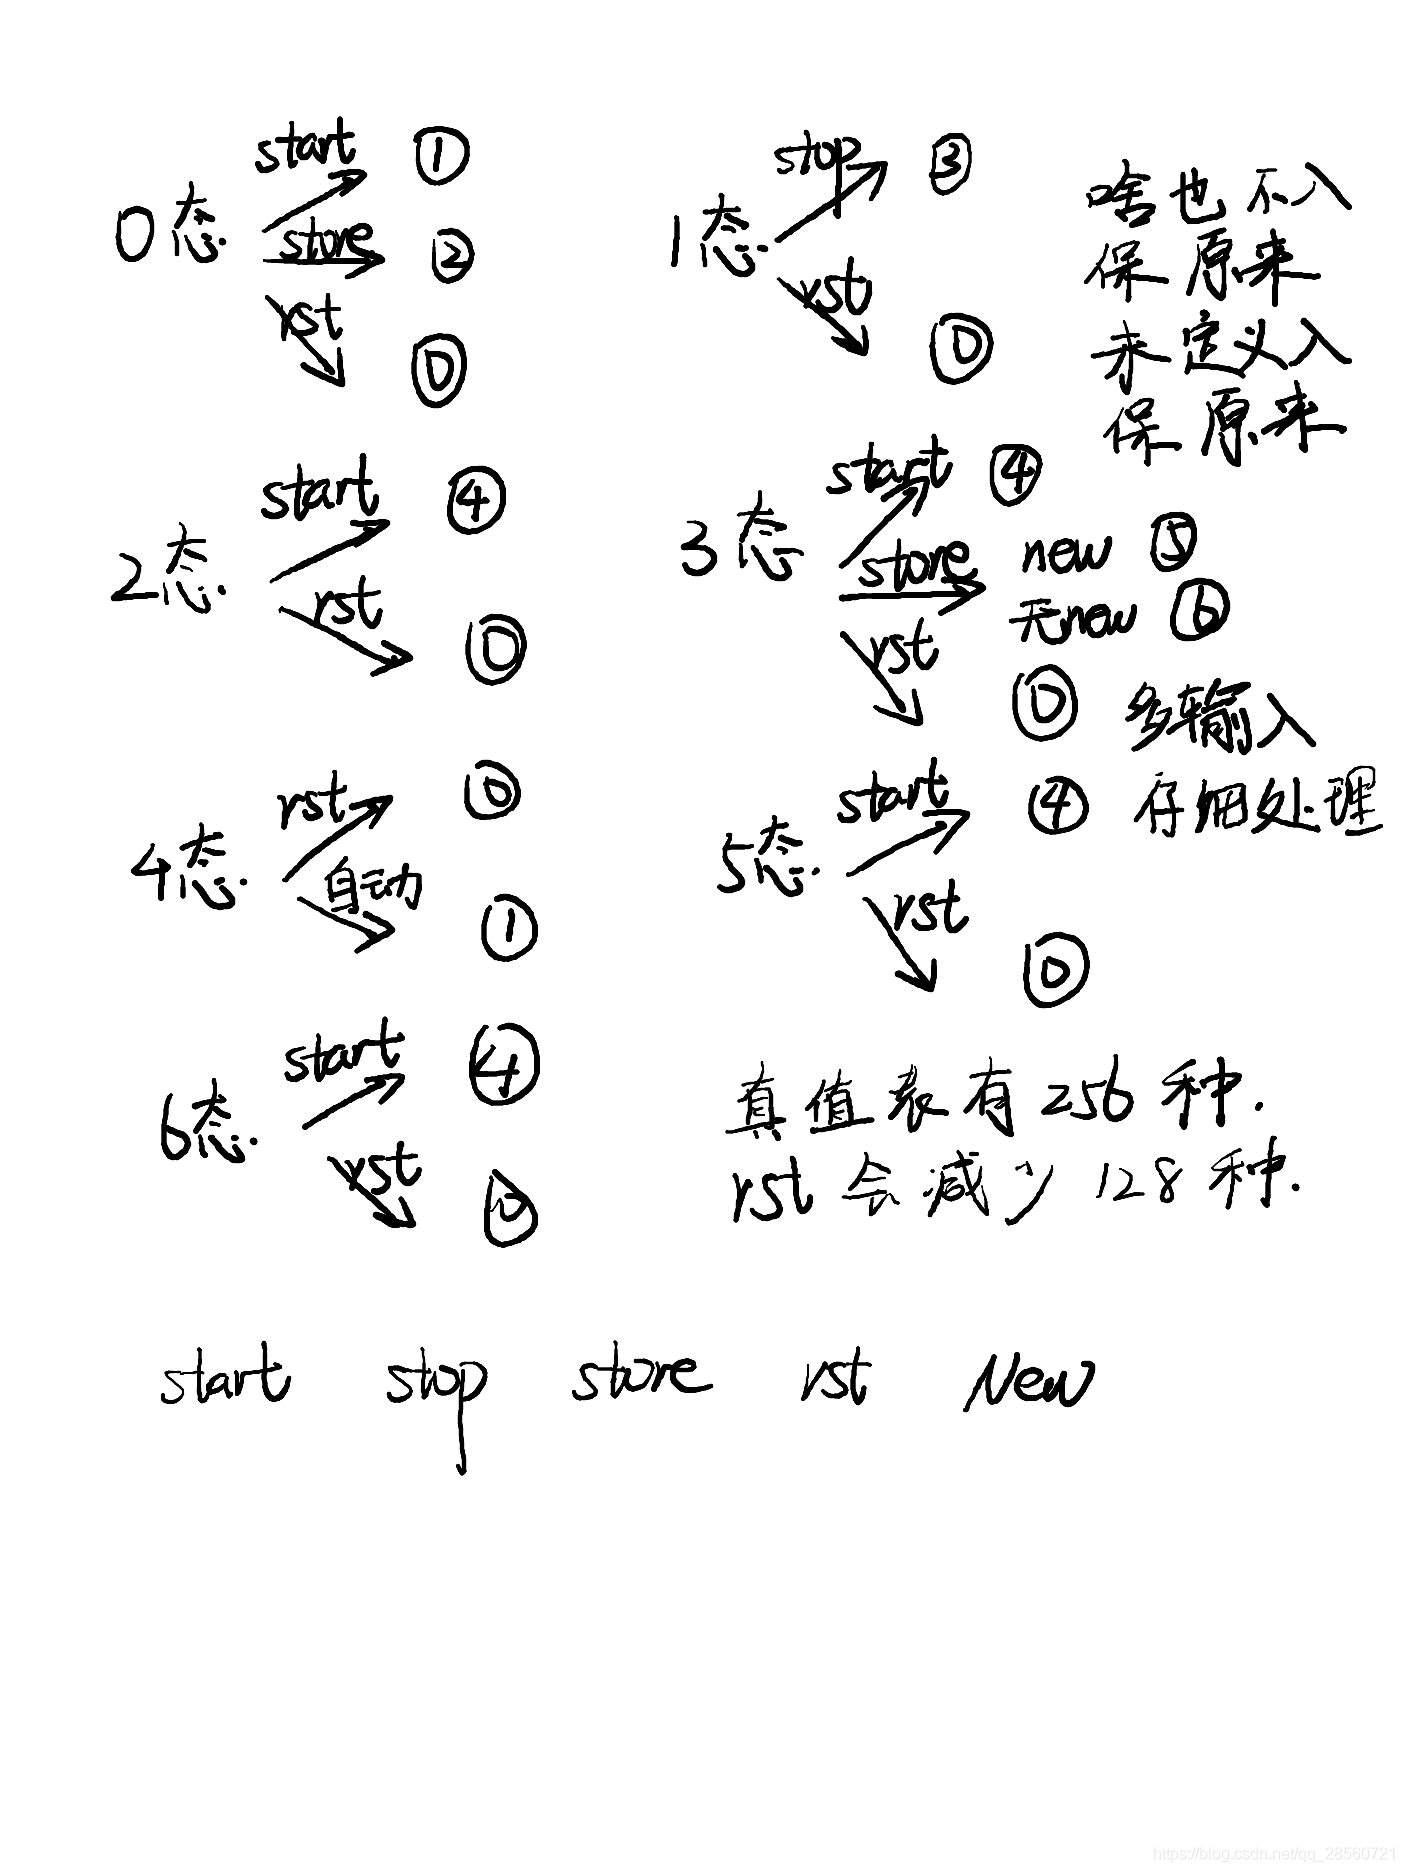 start ①
0态. store ②
rst ⓪
stop ③
1态. rst ⓪
啥也不入
保原来
未定义入
保原来
start ④
2态. rst ⓪
start ④
3态. store new ⑤
无new ⑥
rst ⓪
多输入
仔细处理
rst ⓪
4态. 自动 ①
start ④
5态. rst ⓪
start ④
6态. rst ⓪
真值表有256种.
rst会减少128种.
start stop store rst New
https://blog.csdn.net/qq_28560721